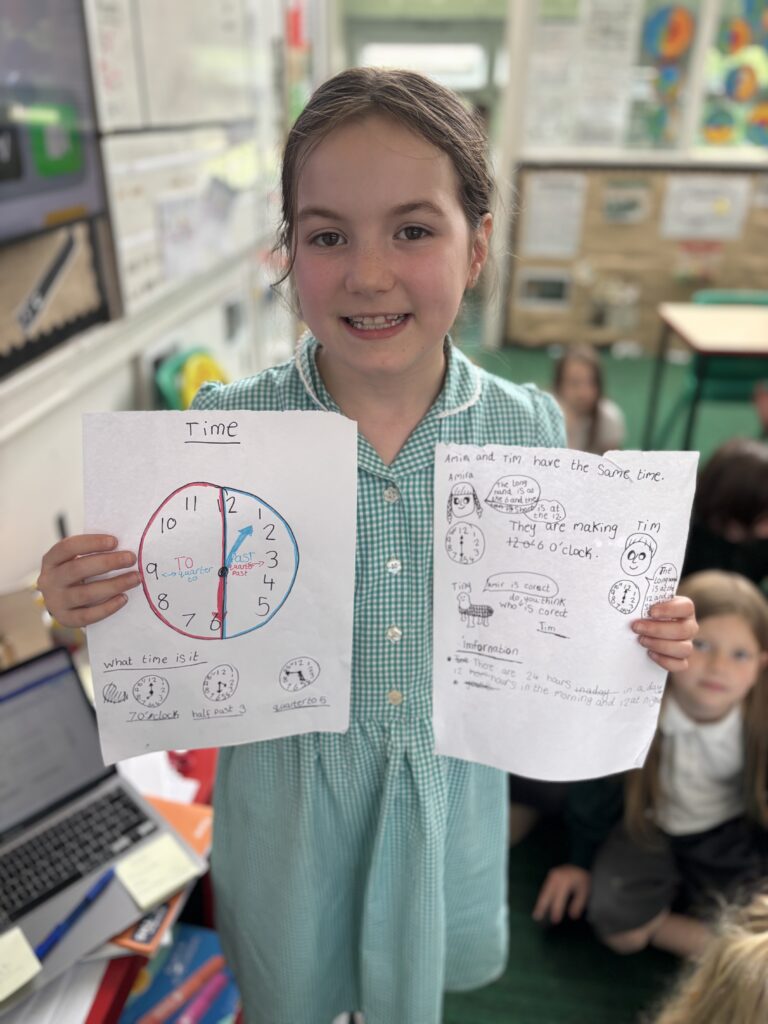 Time
11 12 1
10 2
9 3
8 4
7 6 5
TO Past
quarter quarter
to past
What time is it
7 O'clock half past 3 quarter to 5
Amir and Tim have the same time.
Amira
The long
hand is at
the 6 and the
is at
the 12.
They are making
6 O'clock.
Tim
The
long
is at the
12 and
Tiny
Amir is correct
do you think
who is corect
Tim
imformation
There are 24 hours in a day
12 hours in the morning and 12 at